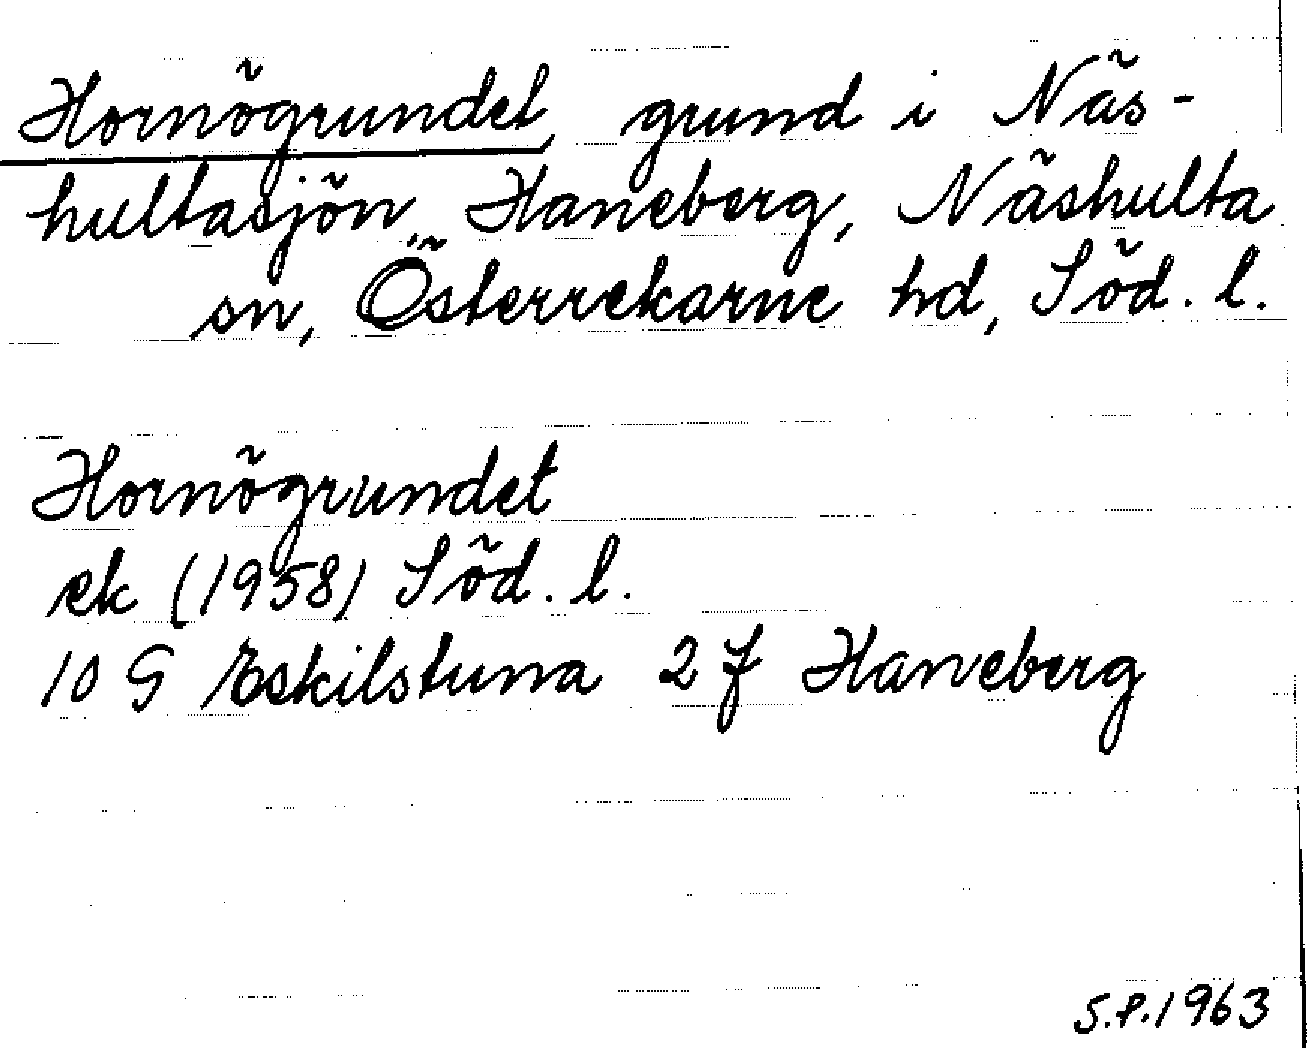 Hornögrundet, grund i Näs-
hultasjön, Haneberg, Näshulta
sn, Österrekarne hd, Söd. l.
Hornögrundet
ek (1958) Söd. l.
10 G Eskilstuna 2 f Haneberg
S.P.1963